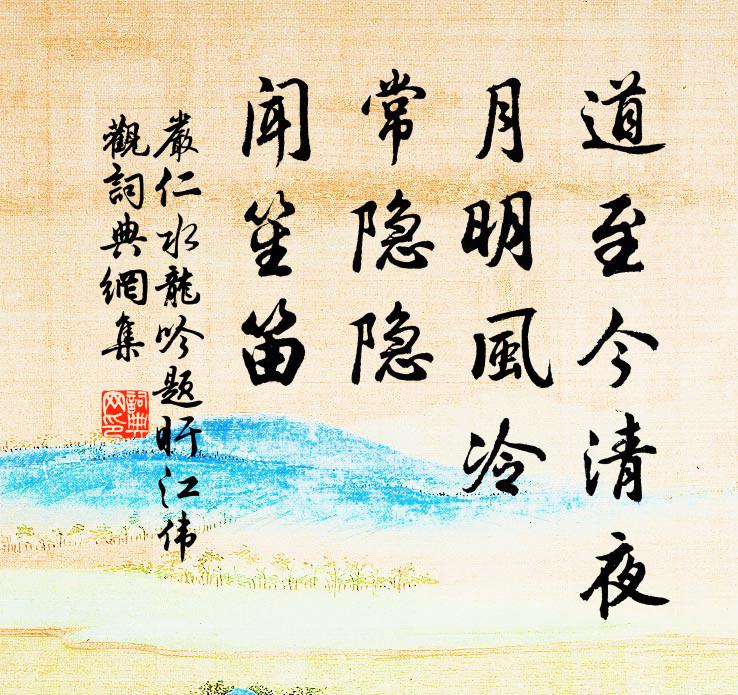 道至今清夜
月明風冷
常隐隐
闻笙笛
嚴仁水龍吟题盱江伟
觀詞典網集
詞典网印